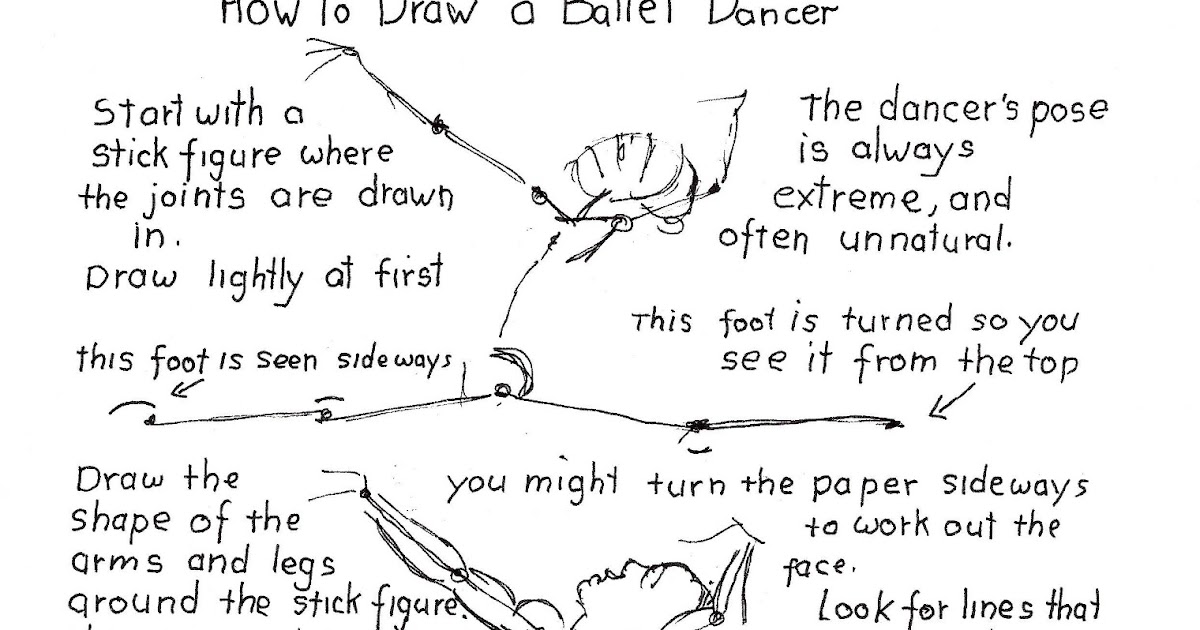 How To Draw a Ballet Dancer
Start with a
stick figure where
the joints are drawn
in.
Draw lightly at first
The dancer's pose
is always
extreme, and
often unnatural.
This foot is turned so you
see it from the top
this foot is seen sideways
Draw the
shape of the
arms and legs
around the stick figure.
you might turn the paper sideways
to work out the
face.
Look for lines that